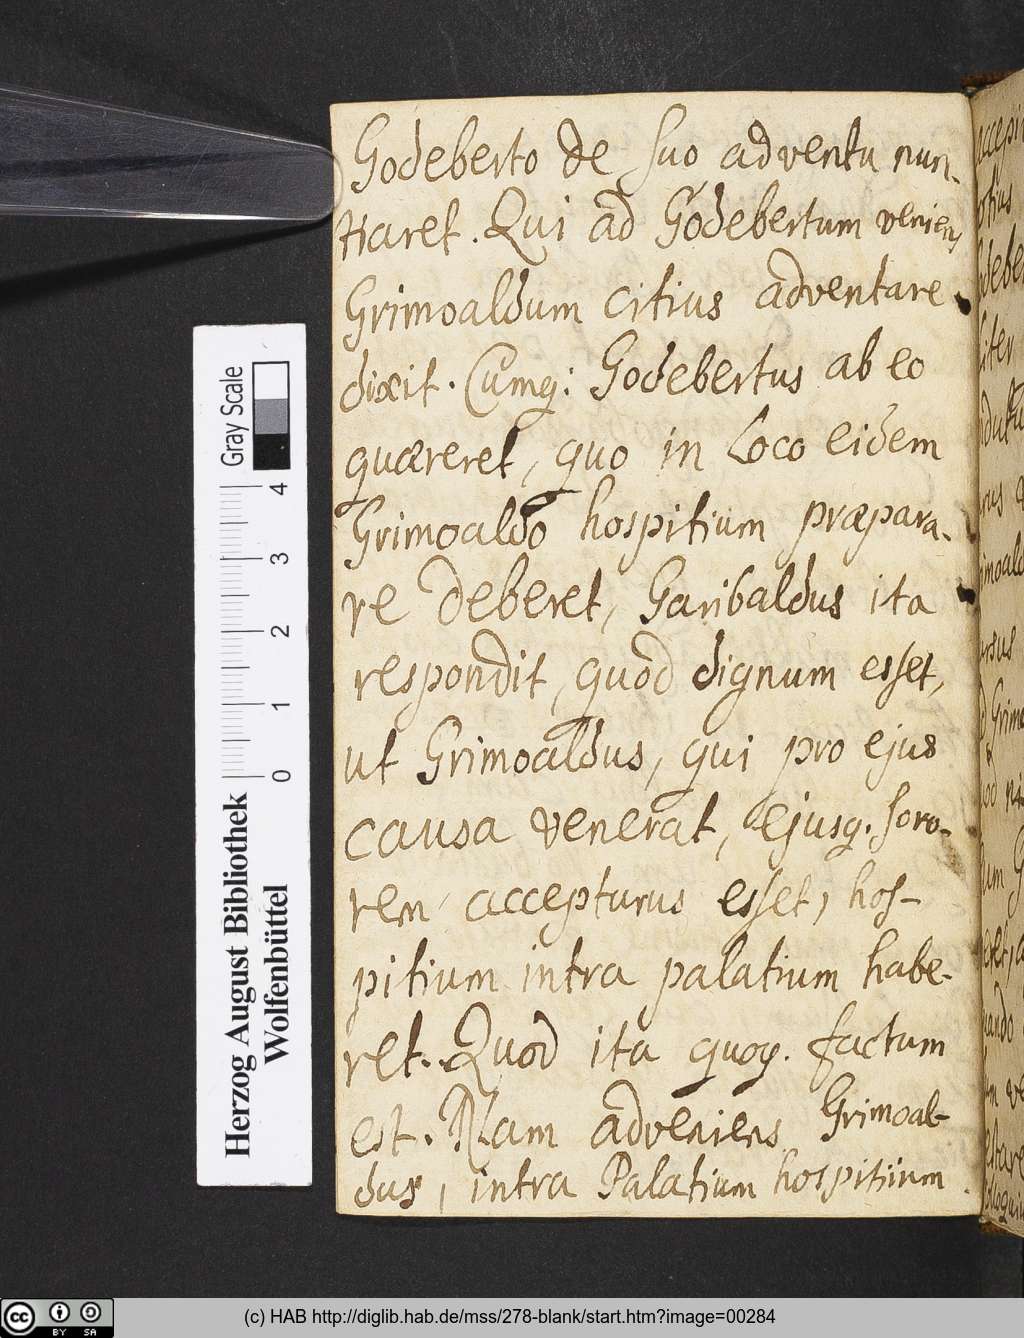 Godeberto de suo adventu nun-
tiaret. Qui ad Godebertum veniens
Grimoaldum citius adventare
dixit. Cumq: Godebertus ab eo
quæreret, quo in Loco eidem
Grimoaldo hospitium præpara-
re deberet, Garibaldus ita
respondit, quod dignum esset,
ut Grimoaldus, qui pro ejus
causa venerat, ejusq. soro-
rem accepturus esset, hos-
pitium intra palatium habe-
ret. Quod ita quoq. factum
est. Nam adveniens Grimoal-
dus, intra Palatium hospitium
Gray Scale
4
3
2
1
0
Herzog August Bibliothek
Wolfenbüttel
cc BY SA
(c) HAB http://diglib.hab.de/mss/278-blank/start.htm?image=00284